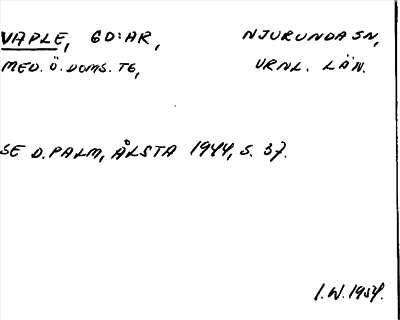 VAPLE, GD:AR, NJURUNDA SN,
MED. Ö. DOMS. TG, VRNL. LÄN.
SE D. PALM, ÅLSTA 1944, S. 37.
I.W. 1954.